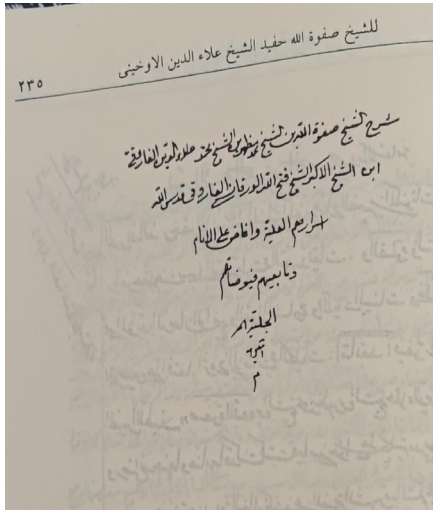 للشيخ صفوة الله حفيد الشيخ علاء الدين الاوخينى
٢٣٥
شرح الشيخ صفوة الله بن الشيخ محمد مظهر بن الشيخ محمد علاء الدين الفاروقي
ابن الشيخ الاكبر الشيخ فتح الله الورقانسي الفاروقي قدس الله
اسرارهم العلية وافاض على الانام
وتابعيهم فيوضاتهم
الجلية
انتهى
م